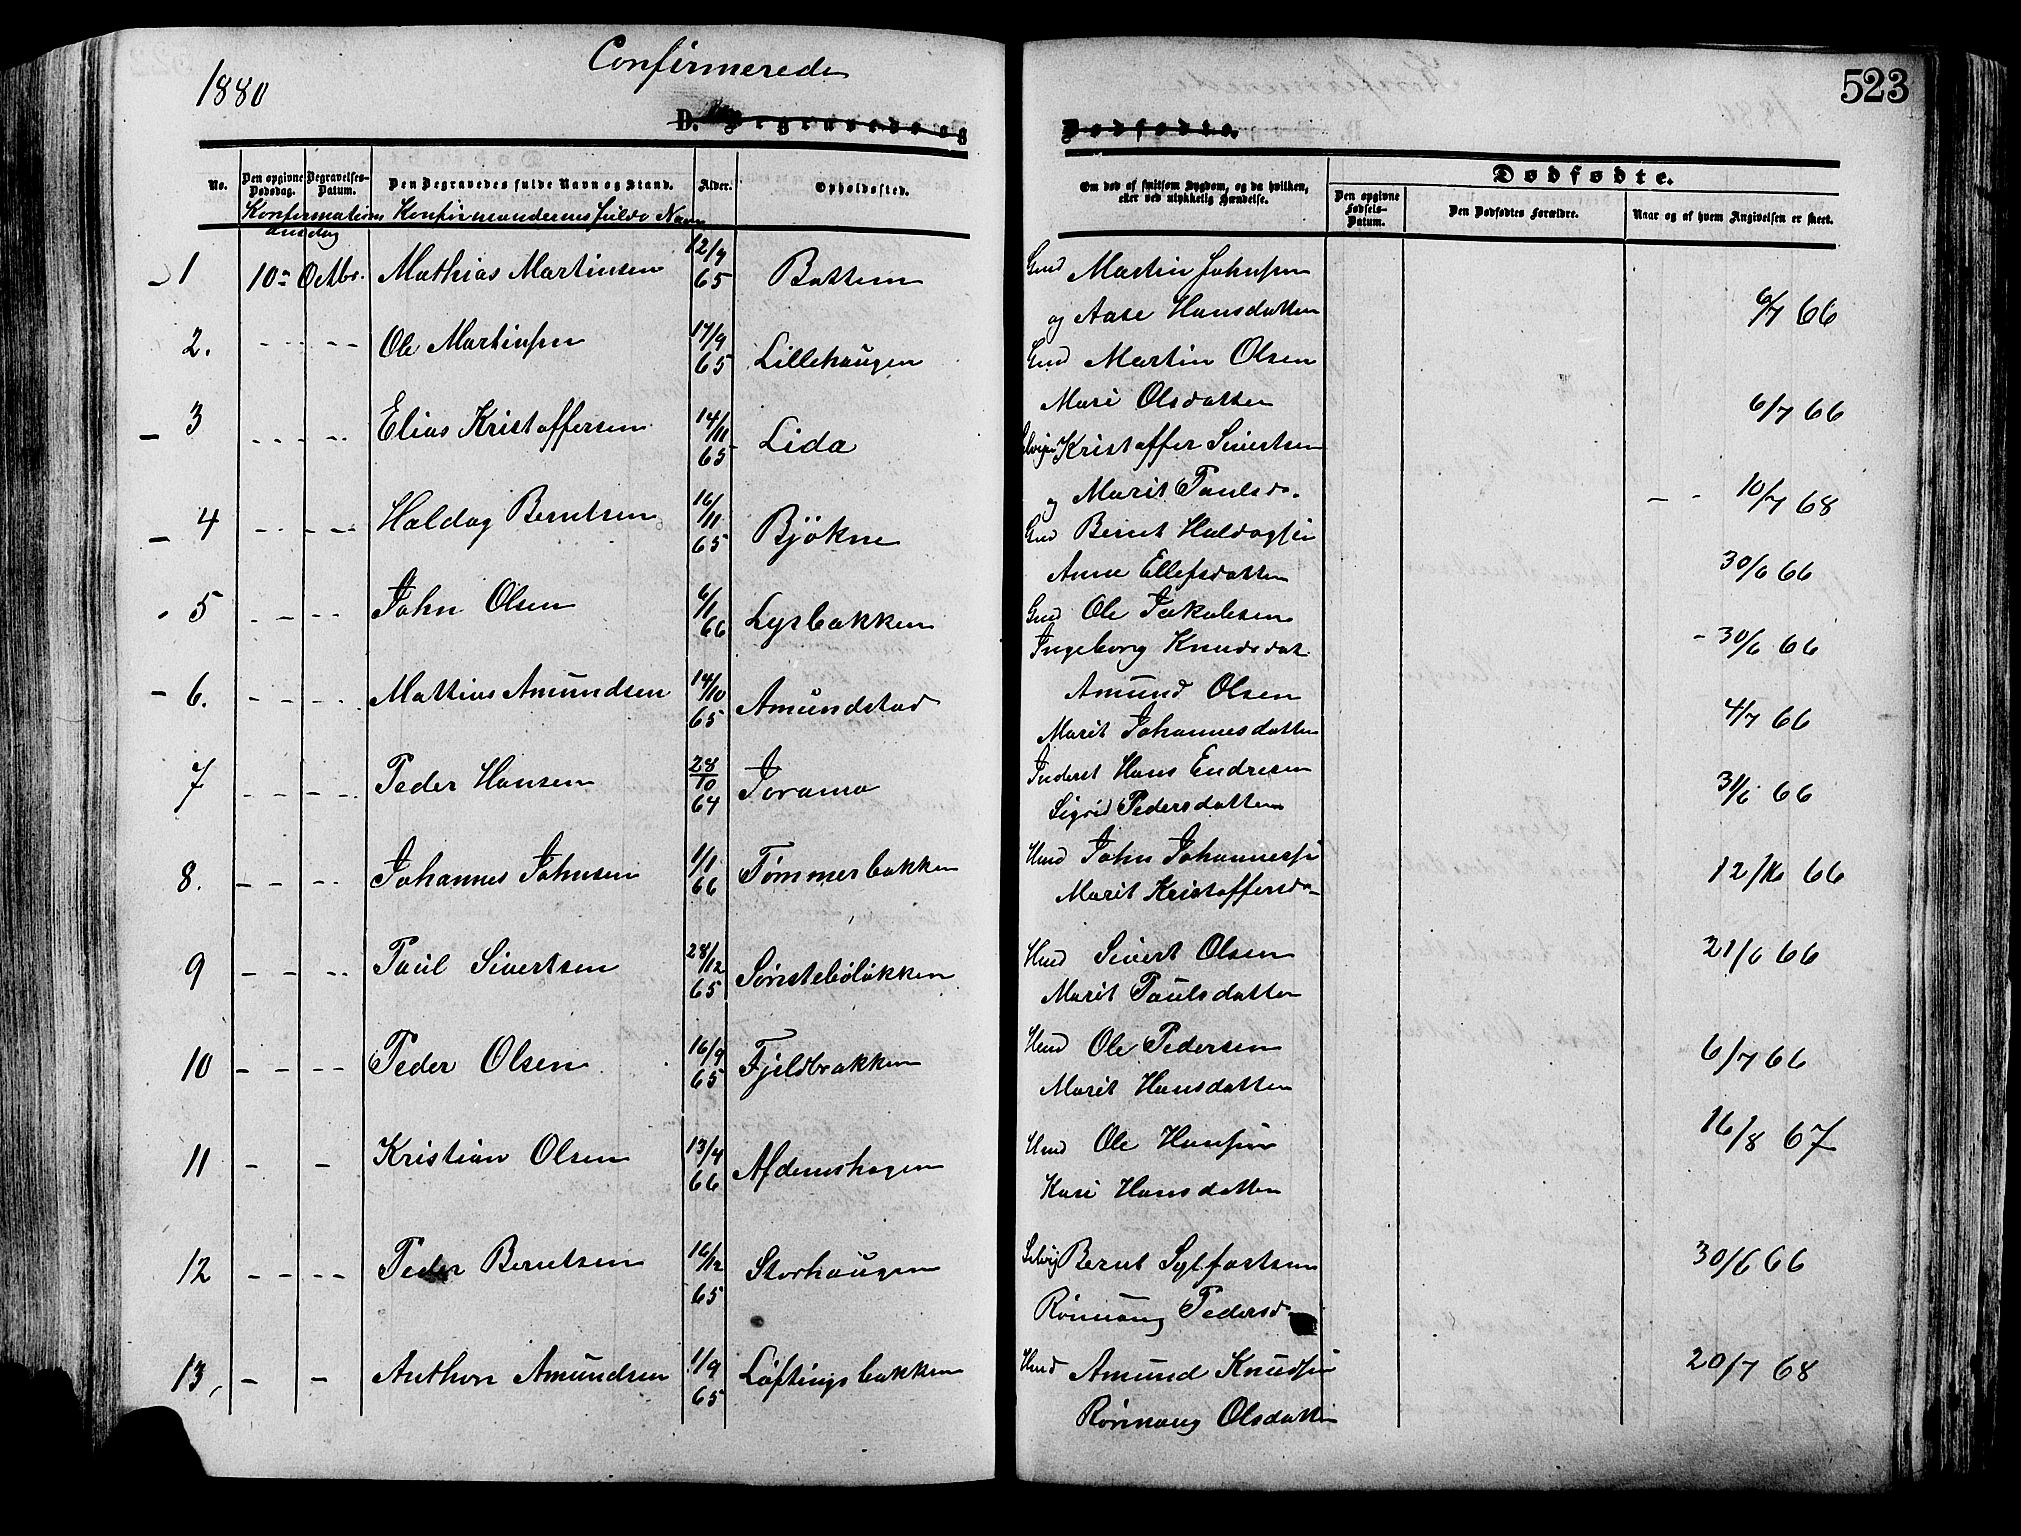 1880
Confirmerede
523
D. Begravede og
Dødfødte.
No.
Den opgivne Dødsdag.
Begravelses-Datum.
Den Begravedes fulde Navn og Stand.
Alder.
Opholdssted.
Om død af smitsom Sygdom, og da hvilken, eller ved ulykkelig Hændelse.
Dødfødte.
Den opgivne Fødsels-Datum.
Den Dødfødtes Forældre.
Naar og af hvem Angivelsen er skeet.
Konfirmations Konfirmandernes fulde Navn
1 10 Octbr. Mathias Martinsen 12/9 65 Battem Gmd Martin Johnsen
og Aase Hansdatter 6/7 66
2. Ole Martinsen 17/9 65 Lillehaugen Gmd Martin Olsen
Mari Olsdatter 6/7 66
3 Elias Kristoffersen 14/11 65 Lida Kristoffer Sivertsen
og Marit Paulsd. 10/7 68
4 Haldag Berntsen 16/11 65 Bjøkne Gmd Bernt Haldagsen
Anne Ellefsdatter 30/6 66
5 John Olsen 6/1 66 Lysbakken Gmd Ole Jakobsen
Ingeborg Knudsdat 30/6 66
6. Mattias Amundsen 14/10 65 Amundstad Amund Olsen
Marit Johannesdatter 4/7 66
7 Peder Hansen 28/10 64 Joramo Inderst Hans Endresen
Sigrid Pedersdatter 66
8. Johannes Johnsen 1/1 66 Tømmerbakken Hmd John Johannessen
Marit Kristoffersd 66
9 Paul Sivertsen 28/12 65 Sønsteboløkken Hmd Sivert Olsen
Marit Paulsdatter 21/6 66
10 Peder Olsen 16/9 65 Fjeldbrækken Hmd Ole Pedersen
Marit Hansdatter 6/7 66
11 Kristian Olsen 13/4 66 Afdemshagen Hmd Ole Hansen
Kari Hansdatter 16/8 67
12 Peder Berntsen 16/12 65 Storhaugen Selvej Bernt Sylfastsen
Rønnaug Pedersd 30/6 66
13, Anthon Amundsen 1/9 65 Løftingsbakken Hmd Amund Knudsen
Rønnaug Olsdatter 20/7 68